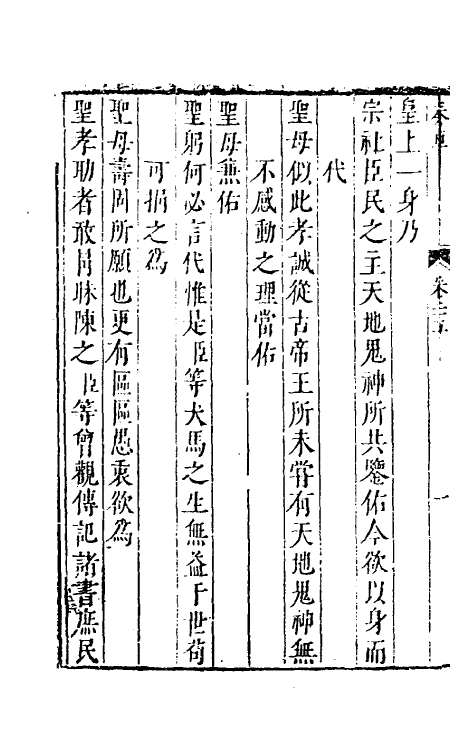 皇上一身乃
宗社臣民之主天地鬼神所共鑒佑今欲以身而
代
聖母似此孝誠從古帝王所未嘗有天地鬼神無
不感動之理當佑
聖母兼佑
聖躬何必言代惟是臣等犬馬之生無益于世苟
可捐之爲
聖母壽固所願也更有區區愚衷欲爲
聖孝助者敢冐昧陳之臣等曾觀傳記諸書庶民